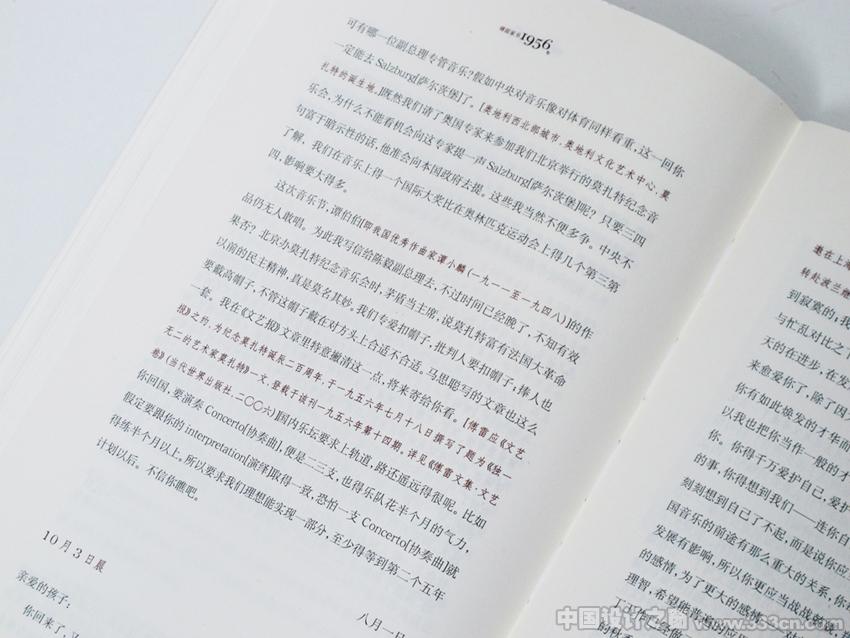 傅雷家书1956年
可有哪一位副总理专管音乐?假如中央对音乐像对体育同样看重,这一回你
一定能去Salzburg[萨尔茨堡]了。[奥地利西北部城市,奥地利文化艺术中心,莫
扎特的诞生地。]既然我们请了奥国专家来参加我们北京举行的莫扎特纪念音
乐会,为什么不能看机会向这专家提一声Salzburg[萨尔茨堡]呢?只要三四
句富于暗示性的话,他准会向本国政府去提。这些我当然不便多争。中央不
了解,我们在音乐上得一个国际大奖比在奥林匹克运动会上得几个第三第
四,影响要大得多。
这次音乐节,谭伯伯[即我国优秀作曲家谭小麟(一九一一至一九四八)]的作
品仍无人敢唱。为此我写信给陈毅副总理去,不过时间已经晚了,不知有效
果否?北京办莫扎特纪念音乐会时,茅盾当主席,说莫扎特富有法国大革命
以前的民主精神,真是莫名其妙。我们专爱扣帽子;批判人要扣帽子;捧人也
要戴高帽子,不管这帽子戴在对方头上合适不合适。马思聪写的文章也这么
一套。我在《文艺报》文章里特意撇清这一点,将来寄给你看。[傅雷应《文艺
报》之约,为纪念莫扎特诞辰二百周年,于一九五六年七月十八日撰写了题为《独一
无二的艺术家莫扎特》一文,登载于该刊一九五六年第十四期。详见《傅雷文集·文艺
卷》(当代世界出版社,二〇〇六)]国内乐坛要求上轨道,路还遥远得很呢。比如
你回国,要演奏Concerto[协奏曲],便是二三支,也得乐队花半个月的气力,
假定要跟你的interpretation[演绎]取得一致,恐怕一支Concerto[协奏曲]就
得练半个月以上。所以要求我们理想能实现一部分,至少得等到第二个五年
计划以后。不信你瞧吧。
八月一日
10月3日晨
亲爱的孩子:
你回来了,又
在上海
转赴波兰
到寂寞的,我
与忙乱对比之下
天的在进步,在发
来愈爱你了,除了因
你有如此焕发的才华而
以我也把你当作一般的才
你。你得千万爱护自己,爱护
的事,你得想到我们——连你自
刻刻想到自己了不起,而是说你应
国音乐的前途有那么重大的关系,你
发展有影响,所以你更应当战战兢兢
的感情,为了更大的感情
理智,希望能
中国设计之窗
www.333cn.com